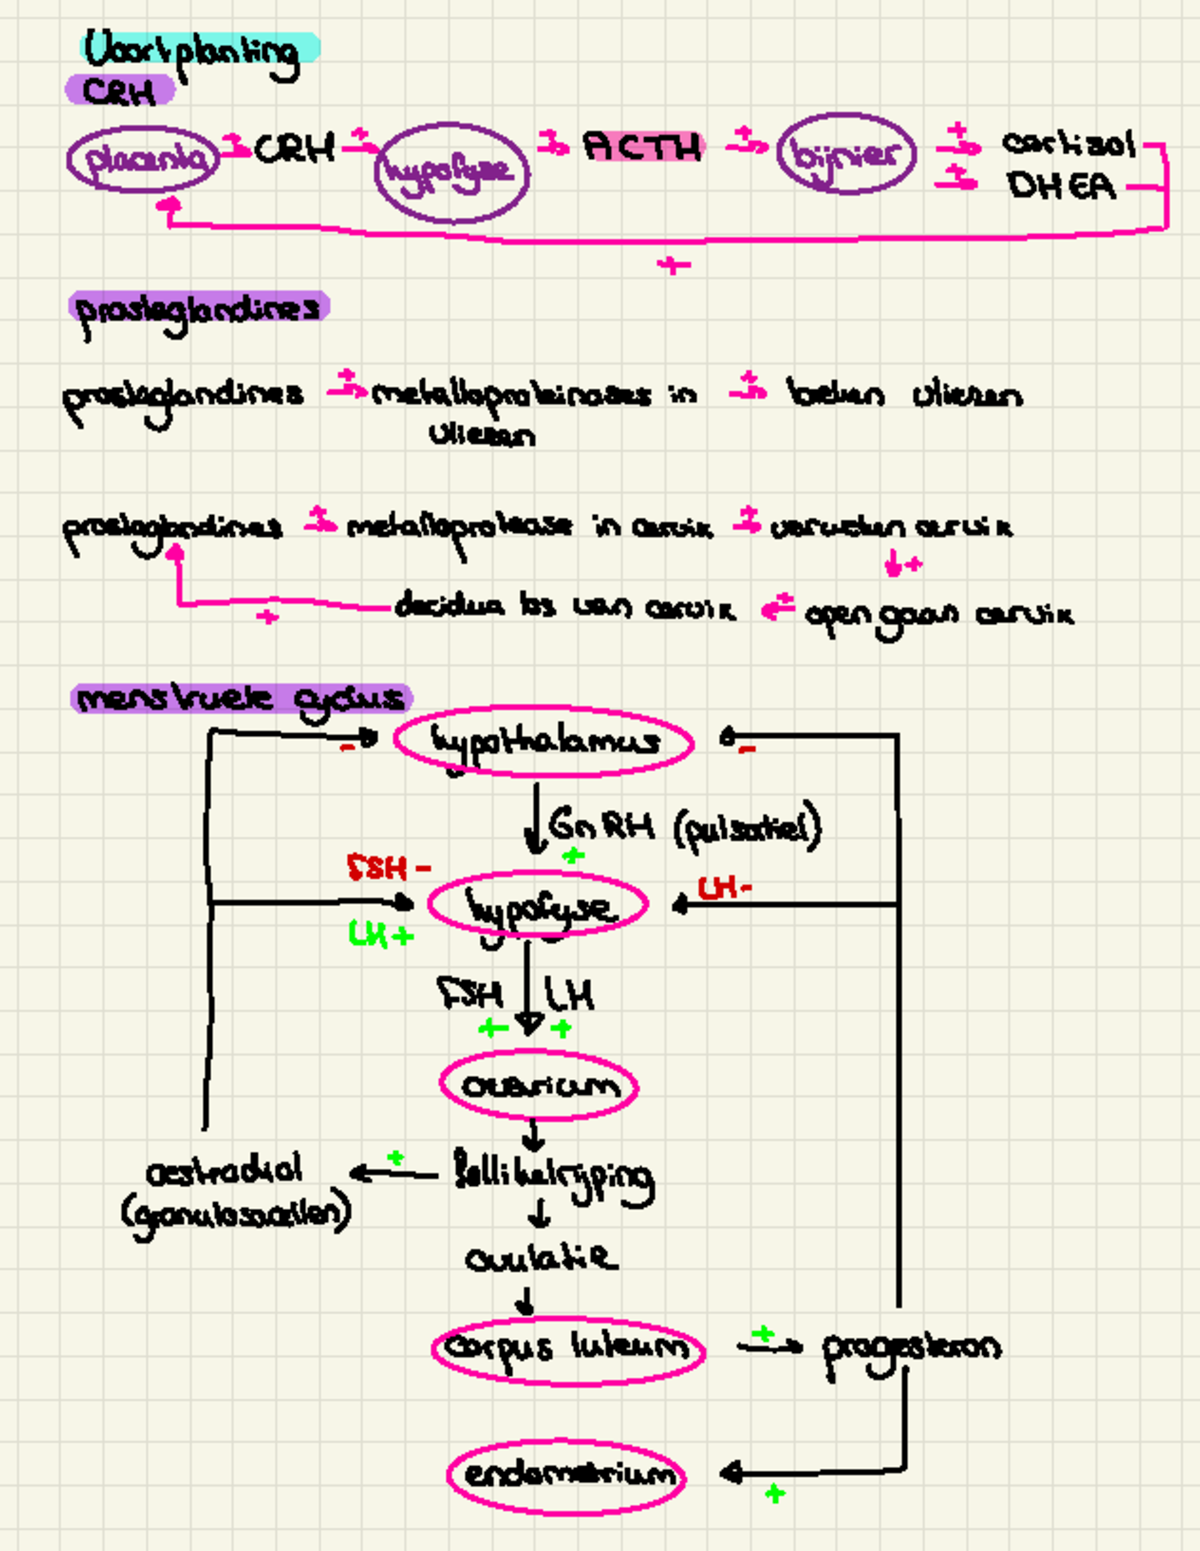 Voortplanting
CRH
placenta + CRH + hypofyse + ACTH + bijnier + cortisol
+ DHEA
+
prostaglandines
prostaglandines + metalloproteinases in + breken vliezen
vliezen
prostaglandines + metalloprotease in cervix + verweken cervix
+
decidua los van cervix + open gaan cervix
+
menstruele cyclus
- hypothalamus -
GnRH (pulsatiel)
+
FSH -
hypofyse LH -
LH +
FSH LH
+ +
ovarium
+
oestradiol follikelrijping
(granulosacellen)
ovulatie
corpus luteum + progesteron
endometrium
+